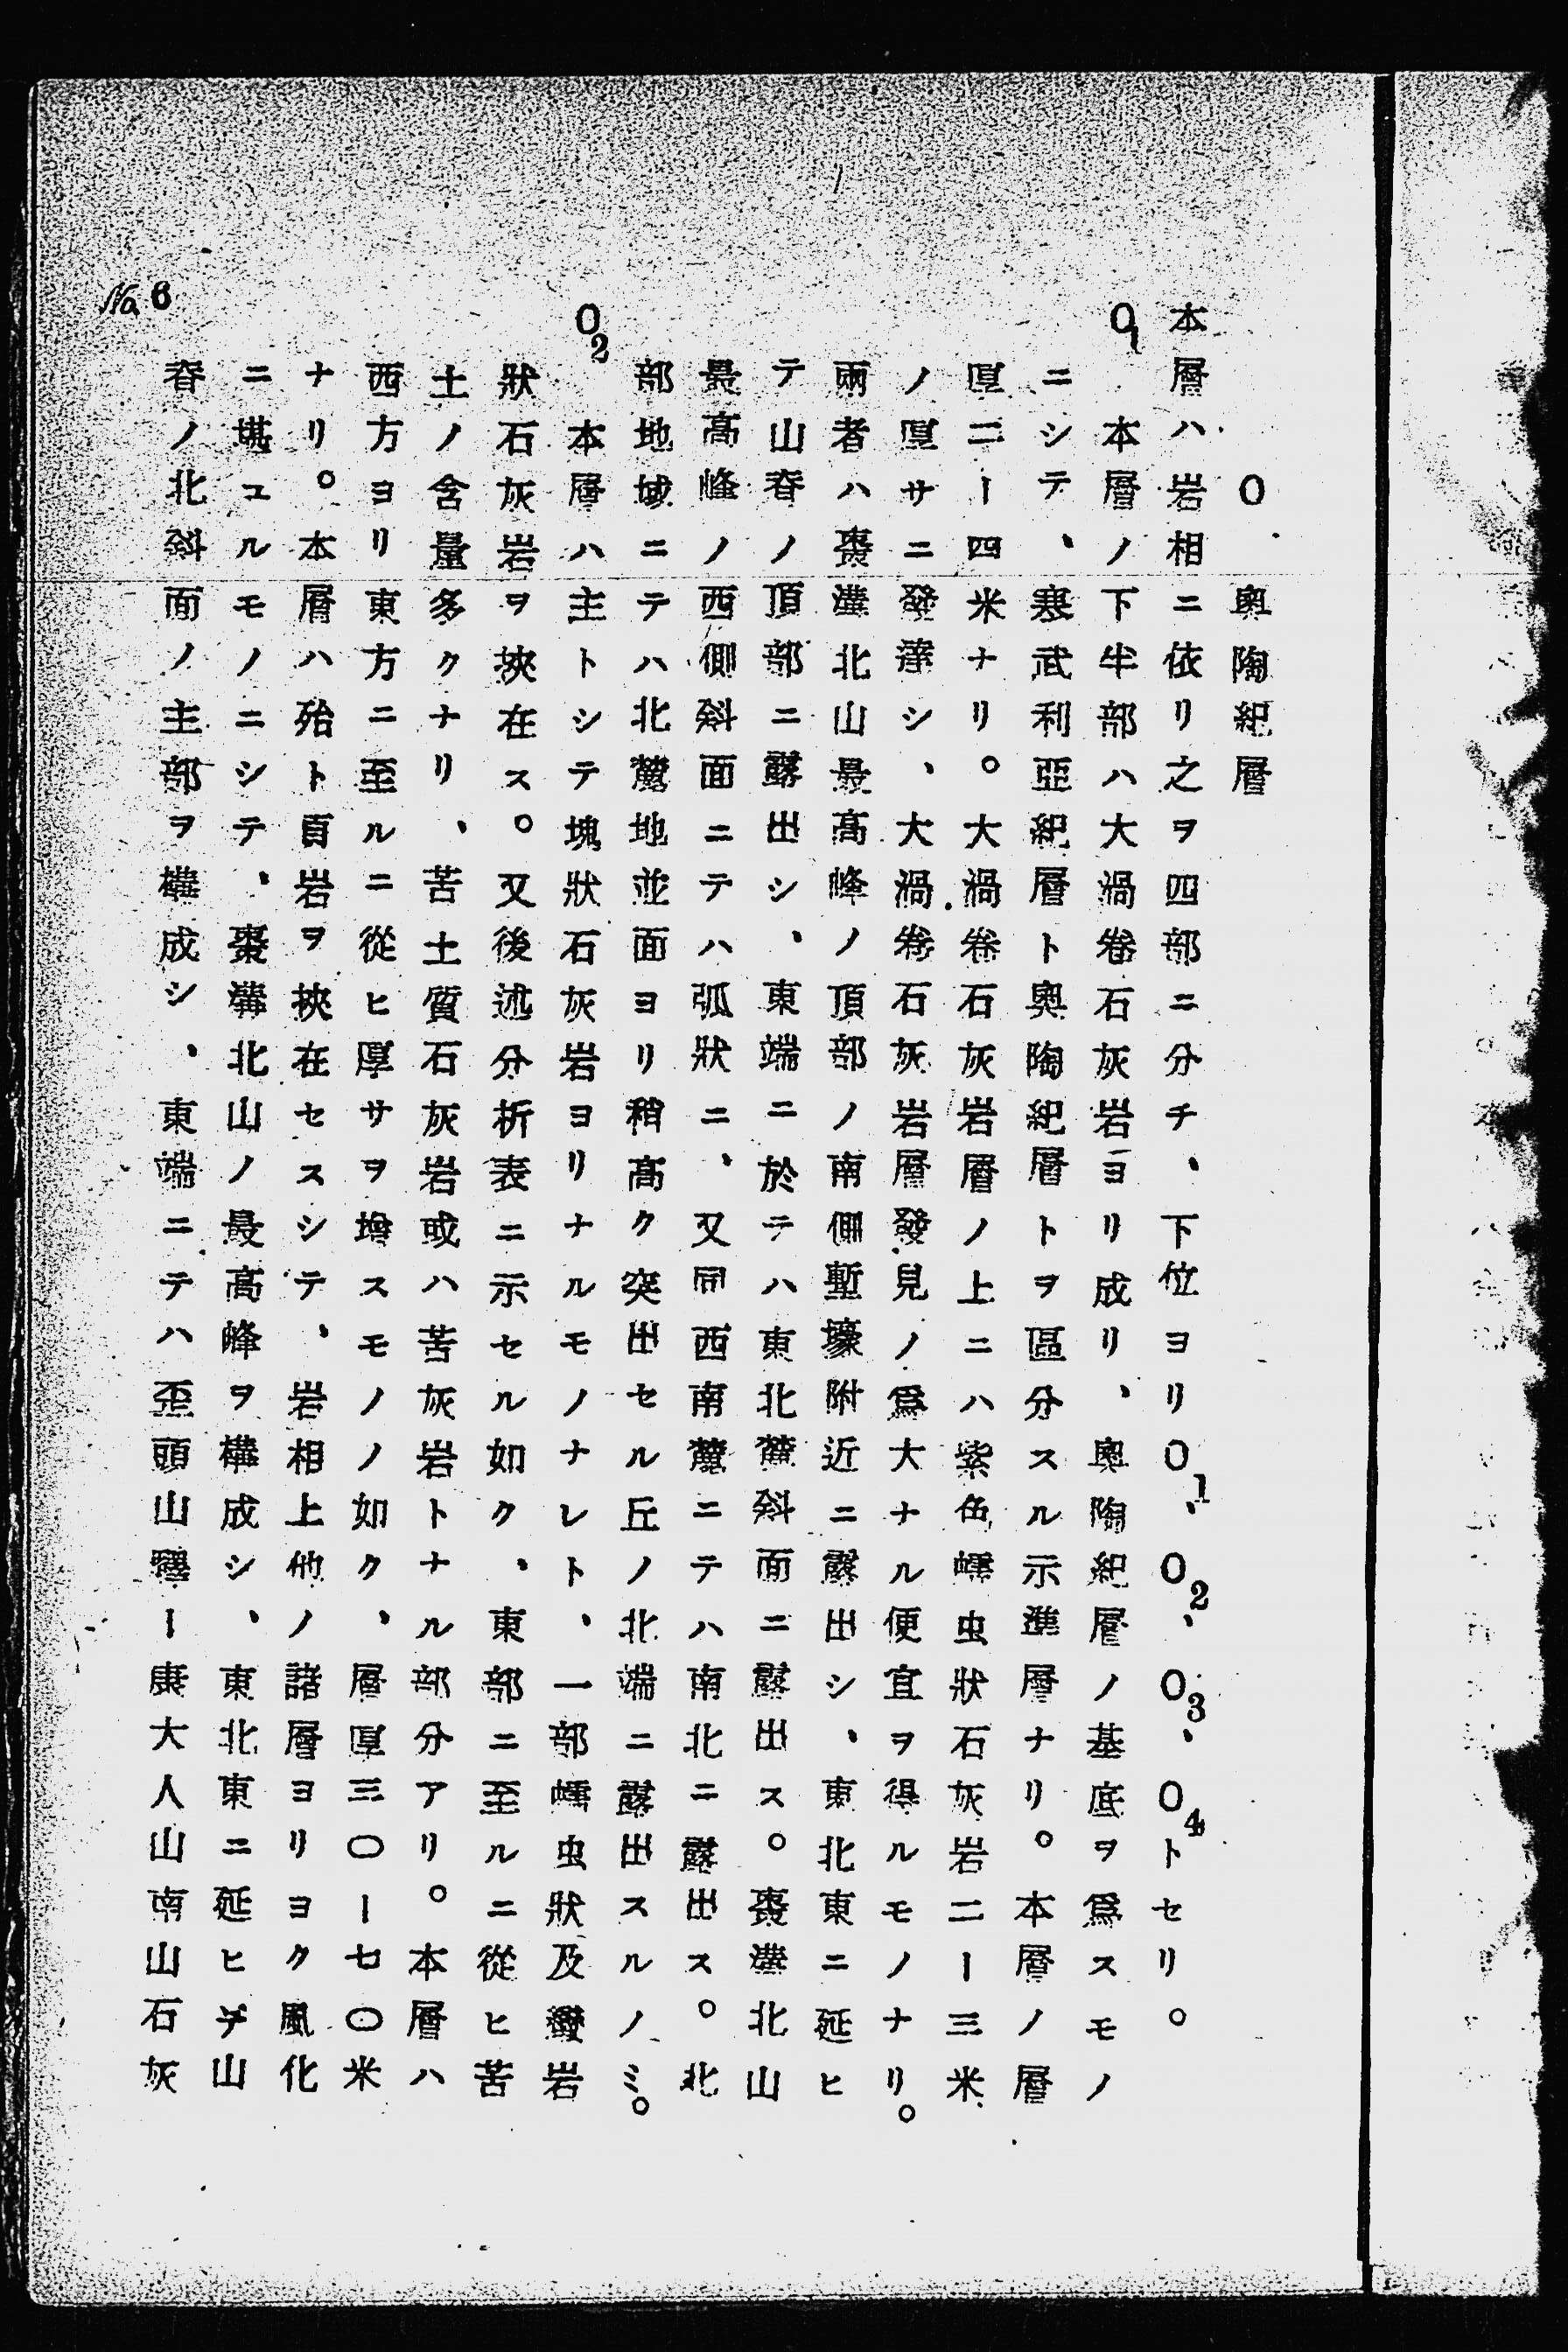 O 奧陶紀層
本層ハ岩相ニ依リ之ヲ四部ニ分チ、下位ヨリO1、O2、O3、O4トセリ。
O1 本層ノ下半部ハ大渦卷石灰岩ヨリ成リ、奧陶紀層ノ基底ヲ爲スモノ
ニシテ、寒武利亞紀層ト奧陶紀層トヲ區分スル示準層ナリ。本層ノ層
厚二ー四米ナリ。大渦卷石灰岩層ノ上ニハ紫色蠕虫狀石灰岩二ー三米
ノ厚サニ發達シ、大渦卷石灰岩層發見ノ爲大ナル便宜ヲ得ルモノナリ。
兩者ハ棗溝北山最高峰ノ頂部ノ南側塹壕附近ニ露出シ、東北東ニ延ヒ
テ山脊ノ頂部ニ露出シ、東端ニ於テハ東北麓斜面ニ露出ス。棗溝北山
最高峰ノ西側斜面ニテハ弧狀ニ、又同西南麓ニテハ南北ニ露出ス。北
部地域ニテハ北麓地並面ヨリ稍高ク突出セル丘ノ北端ニ露出スルノミ。
O2 本層ハ主トシテ塊狀石灰岩ヨリナルモノナレト、一部蠕虫狀及礫岩
狀石灰岩ヲ挾在ス。又後述分析表ニ示セル如ク、東部ニ至ルニ從ヒ苦
土ノ含量多クナリ、苦土質石灰岩或ハ苦灰岩トナル部分アリ。本層ハ
西方ヨリ東方ニ至ルニ從ヒ厚サヲ增スモノノ如ク、層厚三〇ー七〇米
ナリ。本層ハ殆ト頁岩ヲ挾在セスシテ、岩相上他ノ諸層ヨリヨク風化
ニ堪ユルモノニシテ、棗溝北山ノ最高峰ヲ構成シ、東北東ニ延ヒテ山
脊ノ北斜面ノ主部ヲ構成シ、東端ニテハ歪頭山驛ー康大人山南山石灰
No 6